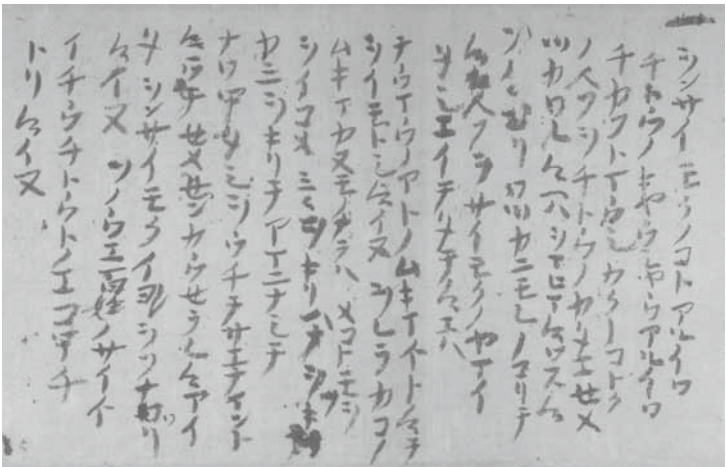 ヲンサイモクノコトアルイワ
チトウノキヤウシヤウアルイワ
チカフトマウシカクノコトク
ノ人フヲチトウノカタエセメ
ツカワレ候ヘハヲマヒマ候ワス候
ソノノコリワツカニモレノコリテ
候人フヲサイモクノヤマイ
タシエイテタテ候エハ
テウマウノアトノムキマケト候テ
ヲイモトシ候イヌヲレラカコノ
ムキマカヌモノナラハメコトモヲ
ヲイコメミミヲキリハナヲソキ
カミヲキリテアマニナシテ
ナワホタシヲウチテサエナマント
候ウテセメセンカウセラレ候アイ
タヲンサイモクイヨイヨヲソナワリ
候イヌソノウエ百姓ノサイケ
イチウチトウトノエコホチ
トリ候イヌ